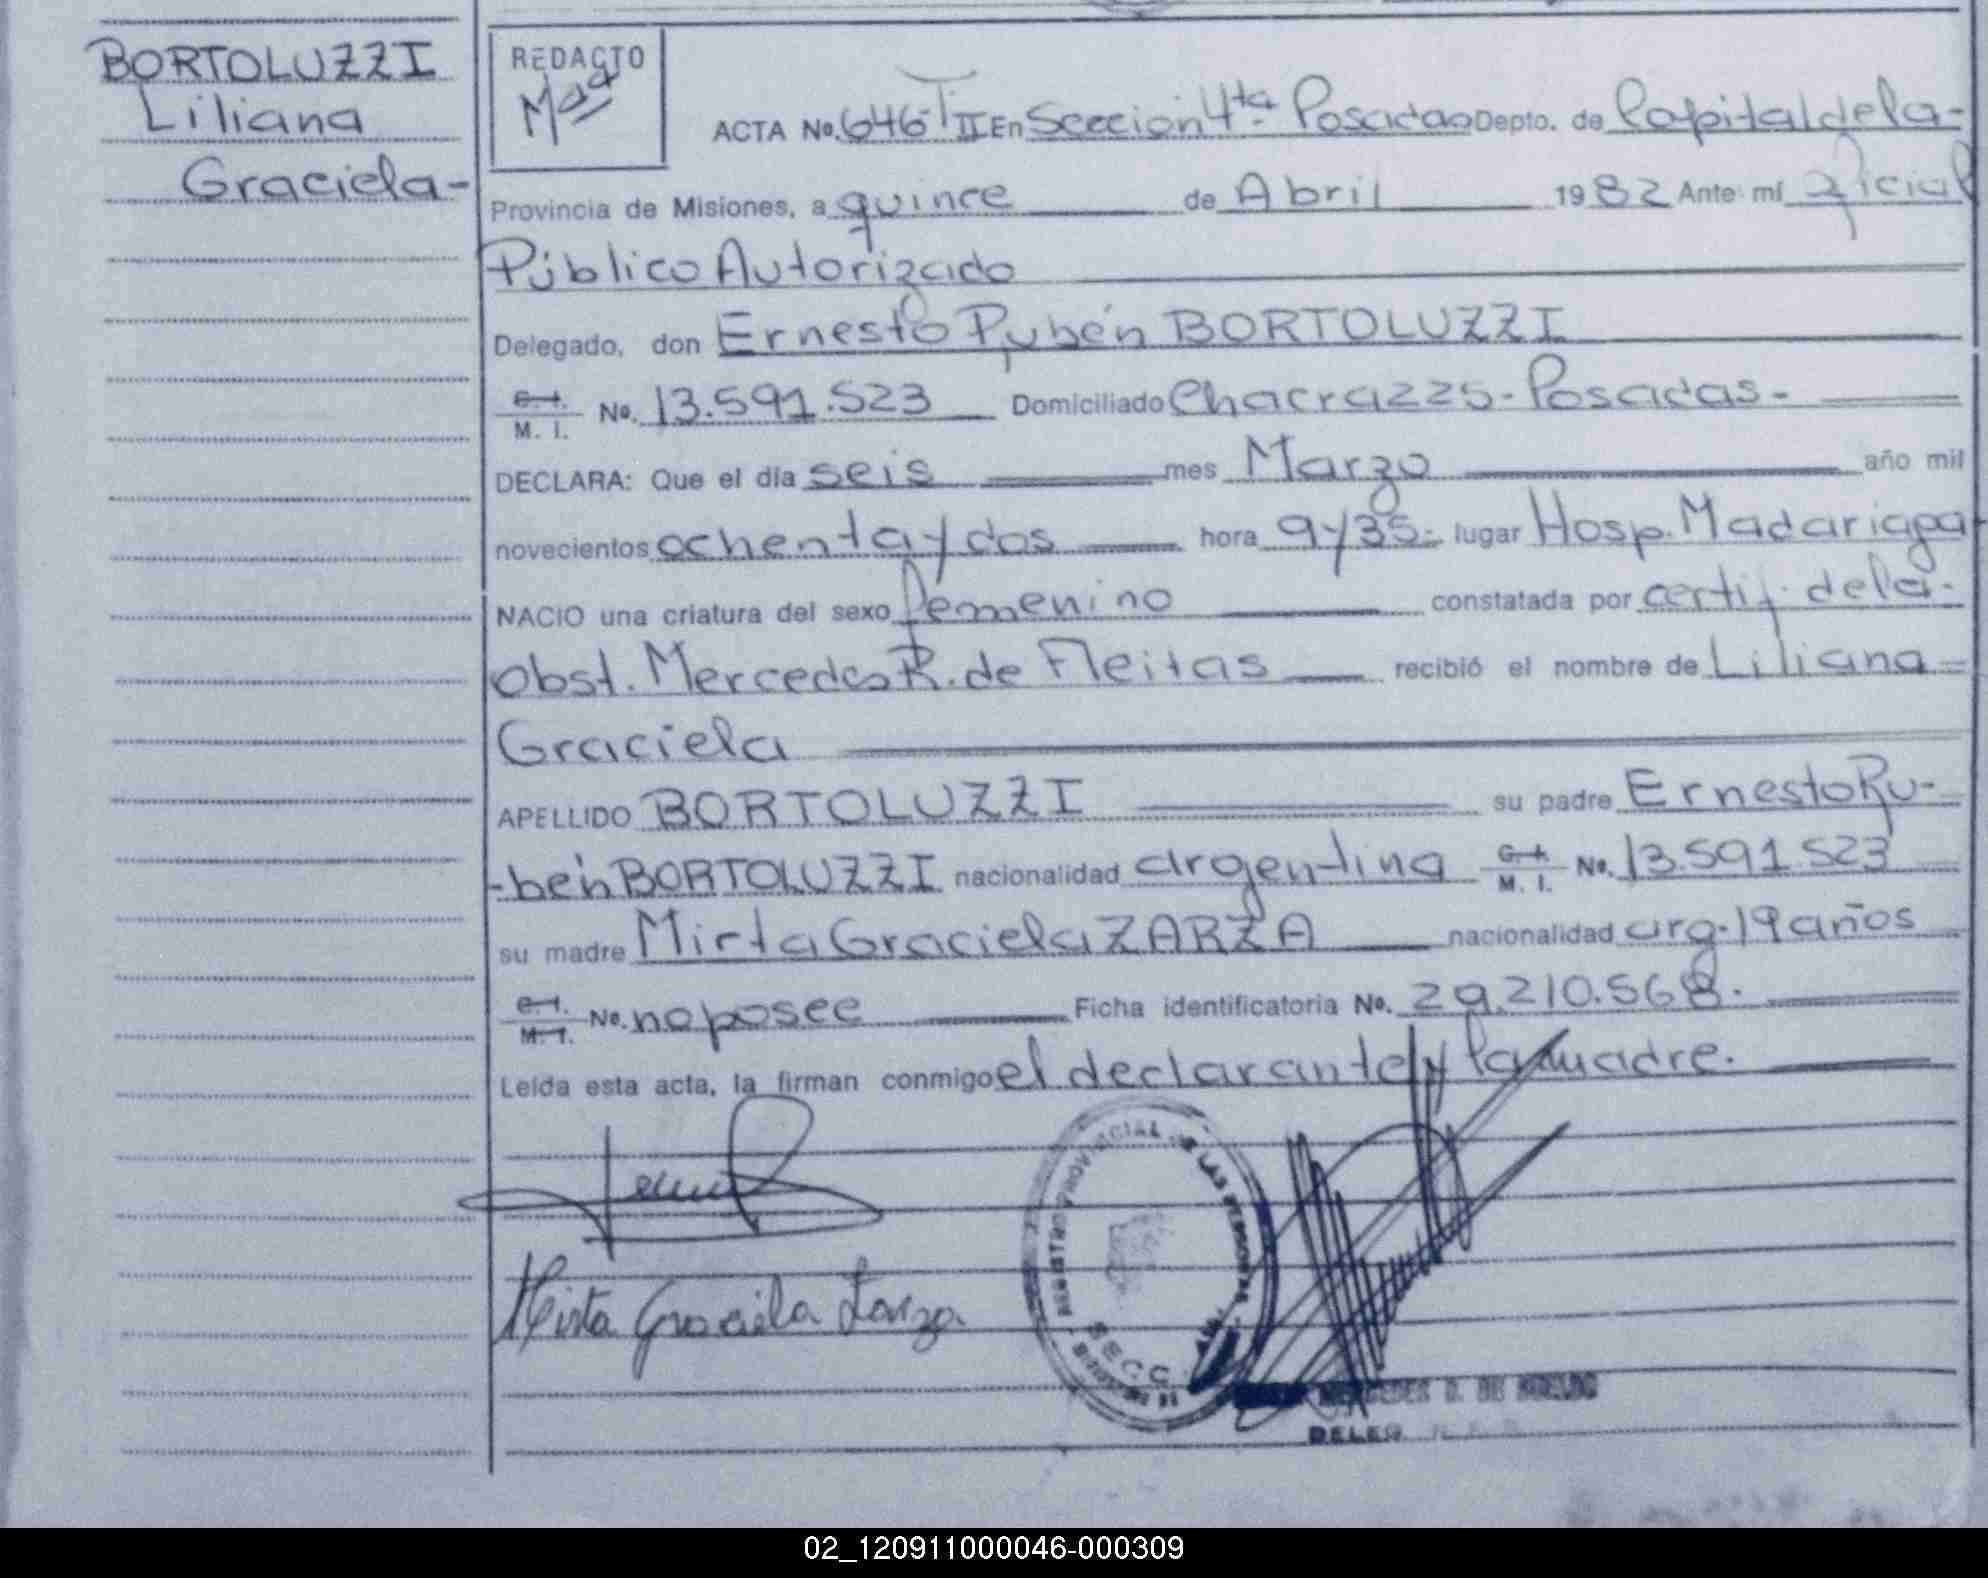 BORTOLUZZI
Liliana
Graciela-
REDACTO
ACTA No. 646-T II En Sección 4ta. Posadas Depto. de Capital de la-
Provincia de Misiones, a quince de Abril 1982 Ante mí Oficial
Público Autorizado
Delegado, don Ernesto Rubén BORTOLUZZI
C. I.
M. I. No. 13.591.523 Domiciliado Chacra 225- Posadas-
DECLARA: Que el día seis mes Marzo año mil
novecientos ochenta y dos hora 9 y 35- lugar Hosp. Madariaga
NACIO una criatura del sexo femenino constatada por certif. de la-
Obst. Mercedes R. de Fleitas recibió el nombre de Liliana
Graciela
APELLIDO BORTOLUZZI su padre Ernesto Ru-
-bén BORTOLUZZI nacionalidad argentina C. I.
M. I. No. 13.591.523
su madre Mirta Graciela ZARZA nacionalidad arg. 19 años
C. I.
M. I. No. no posee Ficha identificatoria No. 29.210.568.
Leída esta acta, la firman conmigo el declarante y la madre.
Mirta Graciela Zarza
REGISTRO PROVINCIAL DE LAS PERSONAS
SECC.
DELEG
02_120911000046-000309